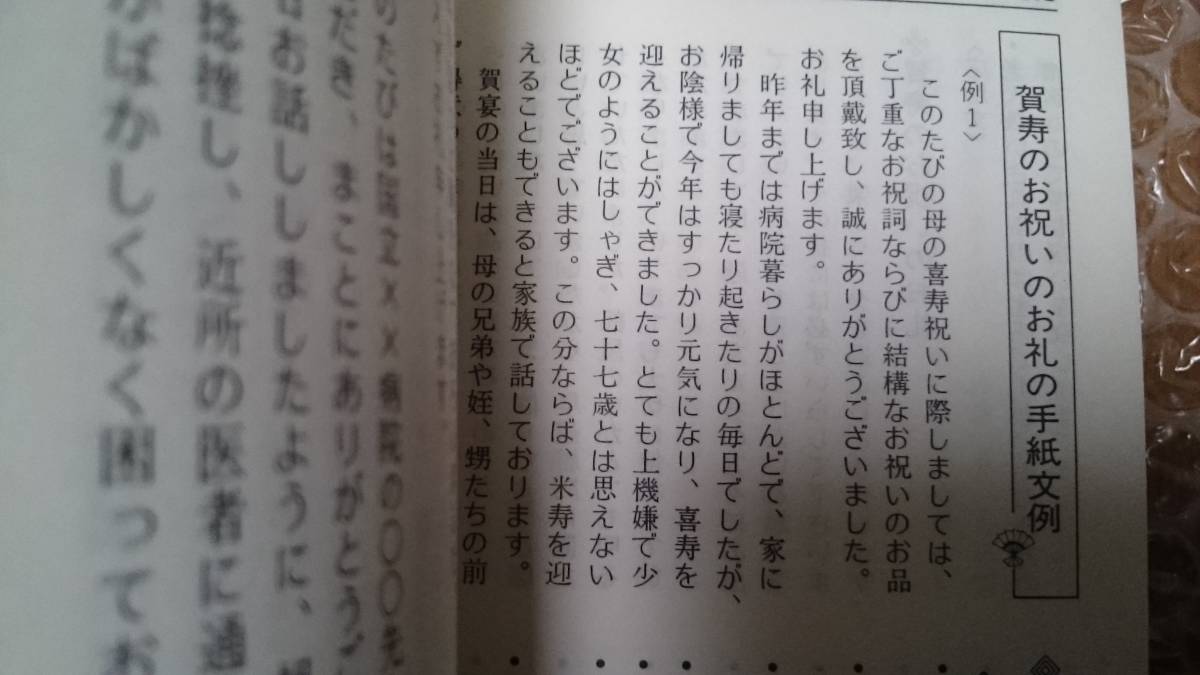 賀寿のお祝いのお礼の手紙文例
〈例1〉
このたびの母の喜寿祝いに際しましては、
ご丁重なお祝詞ならびに結構なお祝いのお品
を頂戴致し、誠にありがとうございました。
お礼申し上げます。
昨年までは病院暮らしがほとんどで、家に
帰りましても寝たり起きたりの毎日でしたが、
お陰様で今年はすっかり元気になり、喜寿を
迎えることができました。とても上機嫌で少
女のようにはしゃぎ、七十七歳とは思えない
ほどでございます。この分ならば、米寿を迎
えることもできると家族で話しております。
賀宴の当日は、母の兄弟や姪、甥たちの前
のたびは
××病院の〇〇〇先
だき、まことにありがとうご
お話ししましたように、
挨拶し、近所の医者に通
がばかしくなく困ってお